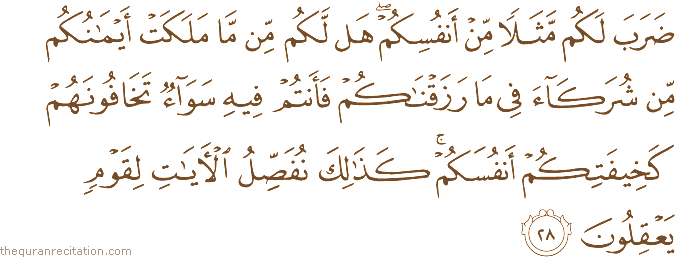 ضَرَبَ لَكُم مَّثَلًا مِّنْ أَنفُسِكُمْ ۖ هَل لَّكُم مِّن مَّا مَلَكَتْ أَيْمَـٰنُكُم
مِّن شُرَكَآءَ فِى مَا رَزَقْنَـٰكُمْ فَأَنتُمْ فِيهِ سَوَآءٌ تَخَافُونَهُمْ
كَخِيفَتِكُمْ أَنفُسَكُمْ ۚ كَذَٰلِكَ نُفَصِّلُ ٱلْـَٔايَـٰتِ لِقَوْمٍ
يَعْقِلُونَ ٢٨
thequranrecitation.com